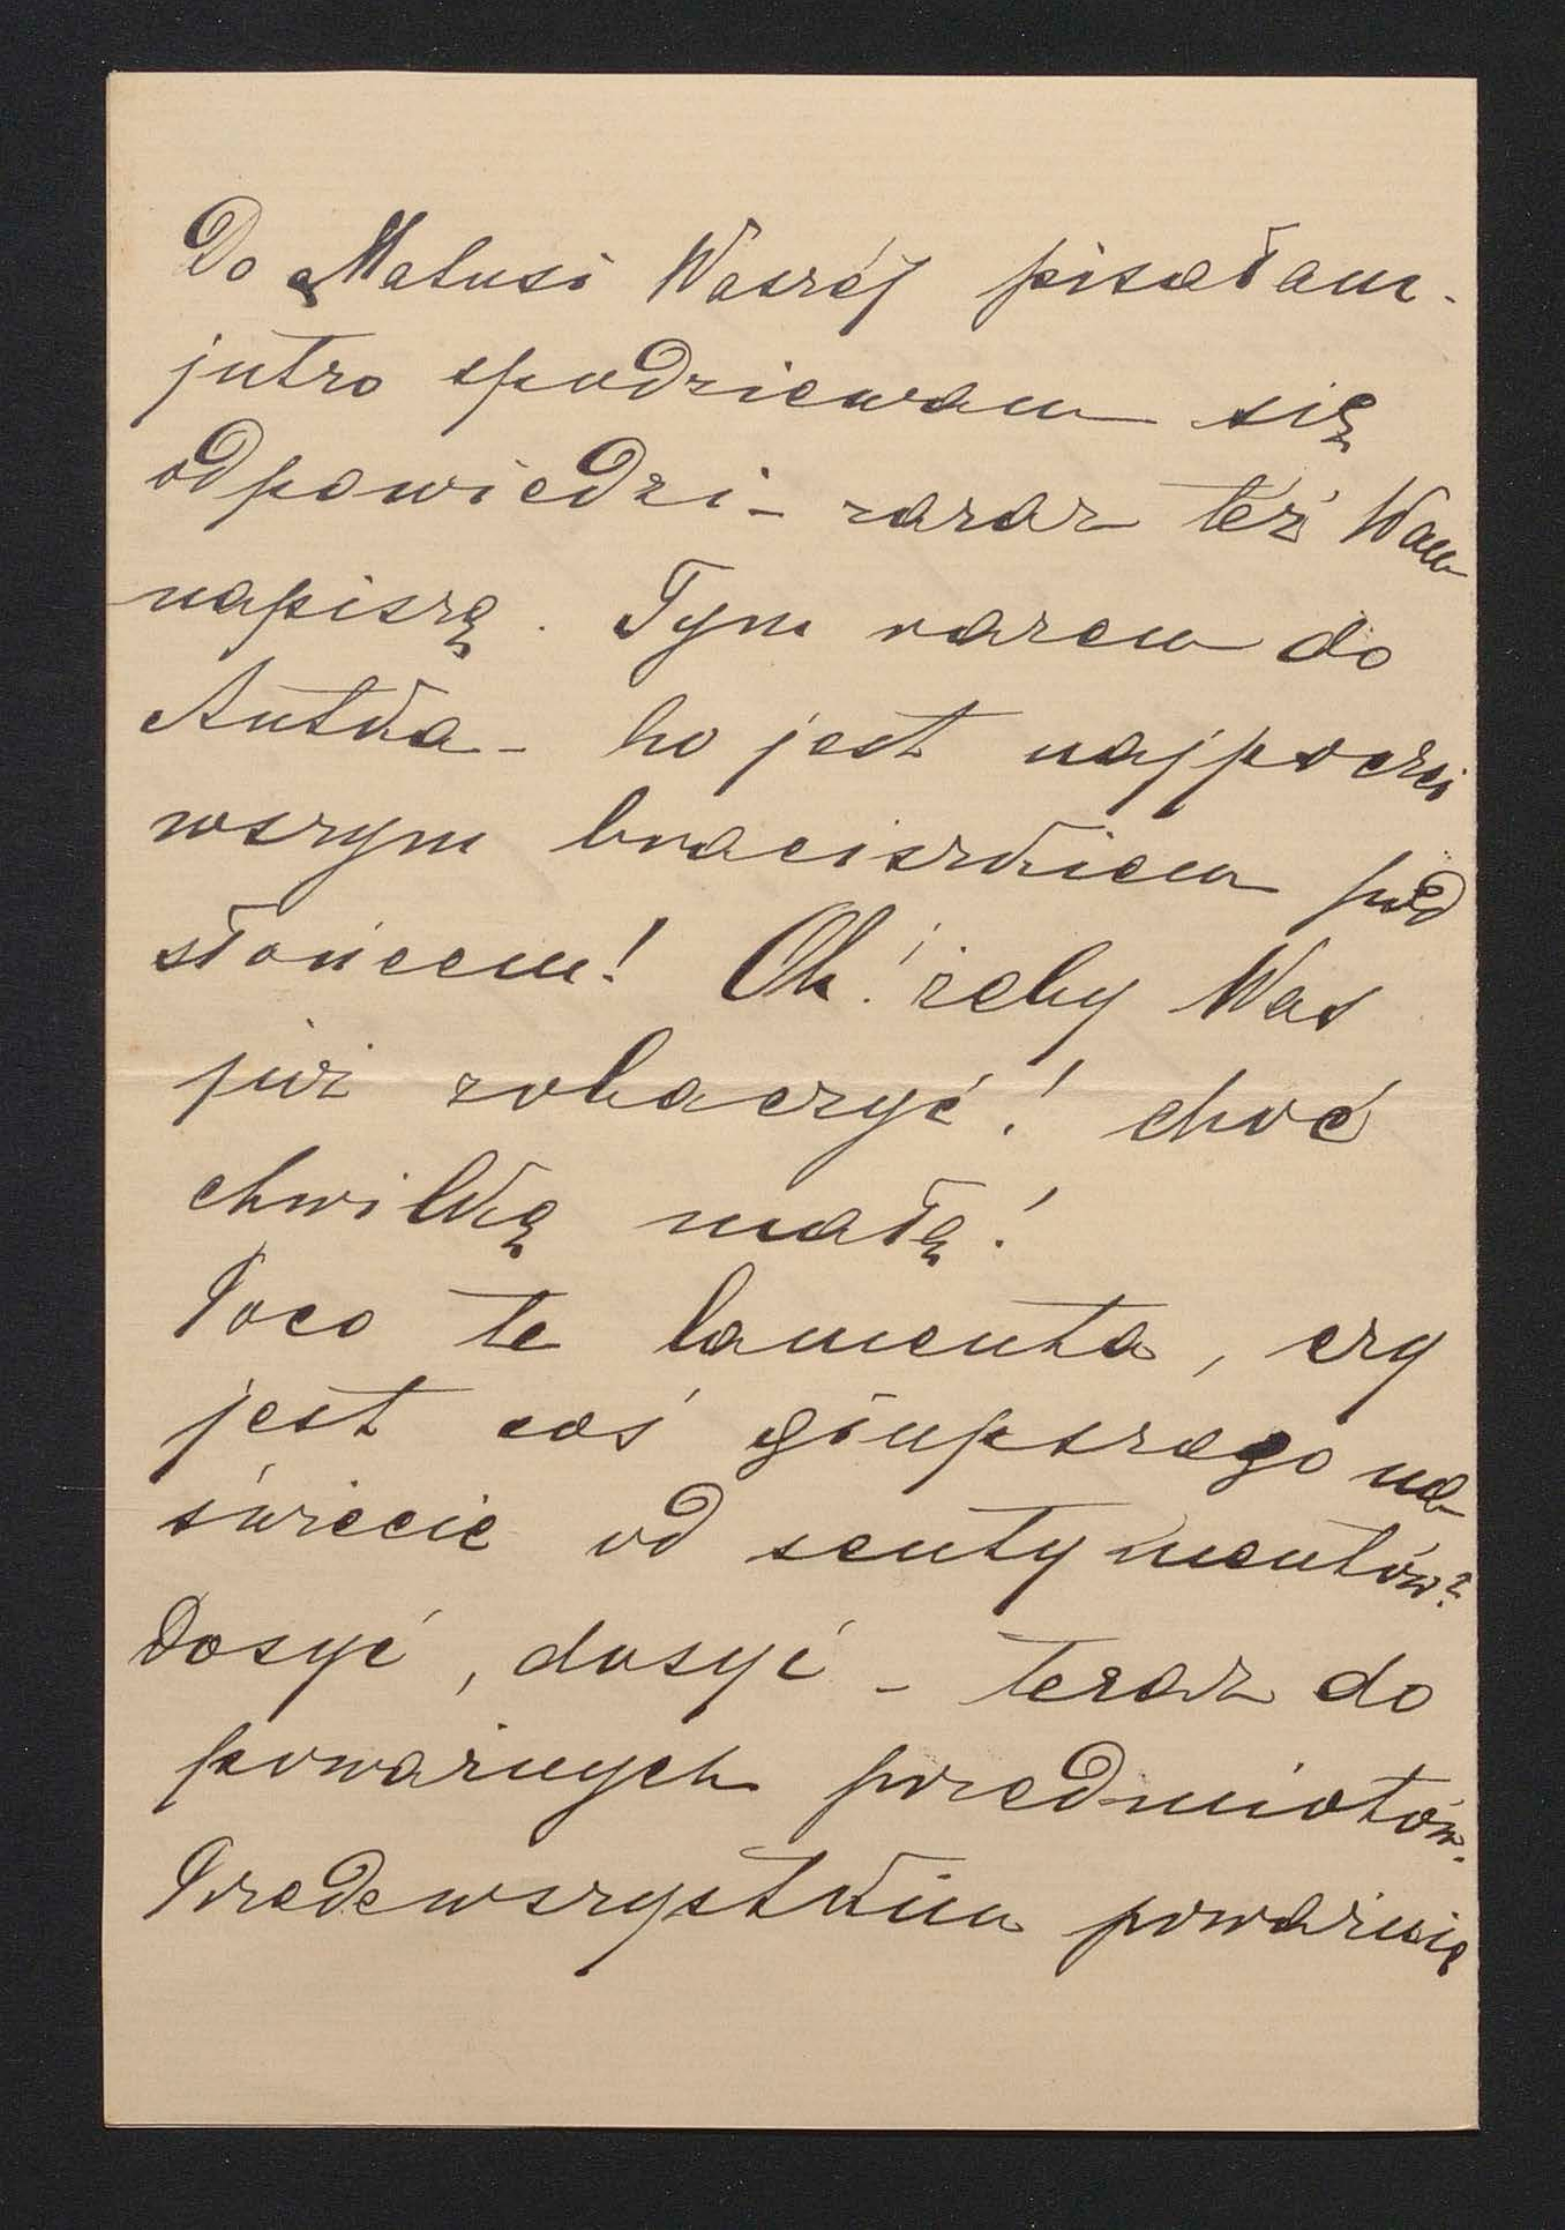 Do Matusi Waszéj pisałam -
jutro spodziewam się
odpowiedzi - zaraz też Wam
napiszę. Tym razem do
Antka - bo jest najpoczci
wszym braciszkiem pod
słońcem! Oh! żeby Was
już zobaczyć! choć
chwilkę małą!
Poco te lamenta, czy
jest coś głupszego na
świecie od sentymentów?
Dosyć, dosyć - teraz do
poważnych przedmiotów.
Przedewszystkim poważnie